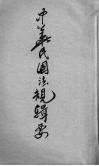 中華民國法規輯要